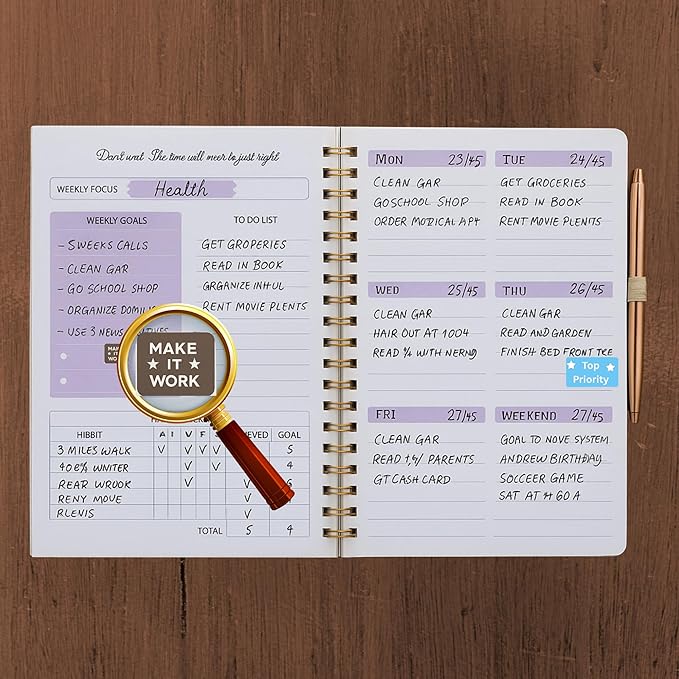 Dant wat The time will meer to just right
WEEKLY FOCUS Health
WEEKLY GOALS
- 5WEEKS CALLS
- CLEAN GAR
- GO SCHOOL SHOP
- ORGANIZE
- USE 3 NEWS
MAKE
★ IT ★
WORK
TO DO LIST
GET GROPERIES
READ IN BOOK
RENT MOVIE PLENTS
HIBBIT A I V F GOAL
3 MILES WALK V V V V 5
WNITER V V 4
REAR WROOK V V
RENY MOVE V
V
TOTAL 5 4
MON 23/45
CLEAN GAR
GOSCHOOL SHOP
ORDER MODICAL AP4
TUE 24/45
GET GROCERIES
READ IN BOOK
RENT MOVIE PLENITS
WED 25/45
CLEAN GAR
HAIR OUT AT 1004
READ WITH
THU 26/45
CLEAN GAR
READ AND GARDEN
FINISH BED FRONT TCE
★ Top ★
Priority
FRI 27/45
CLEAN GAR
READ PARENTS
GT CASH CARD
WEEKEND 27/45
GOAL TO NOVE SYSTEM
ANDREW BIRTHDAY
SOCCEER GAME
SAT AT 60 A